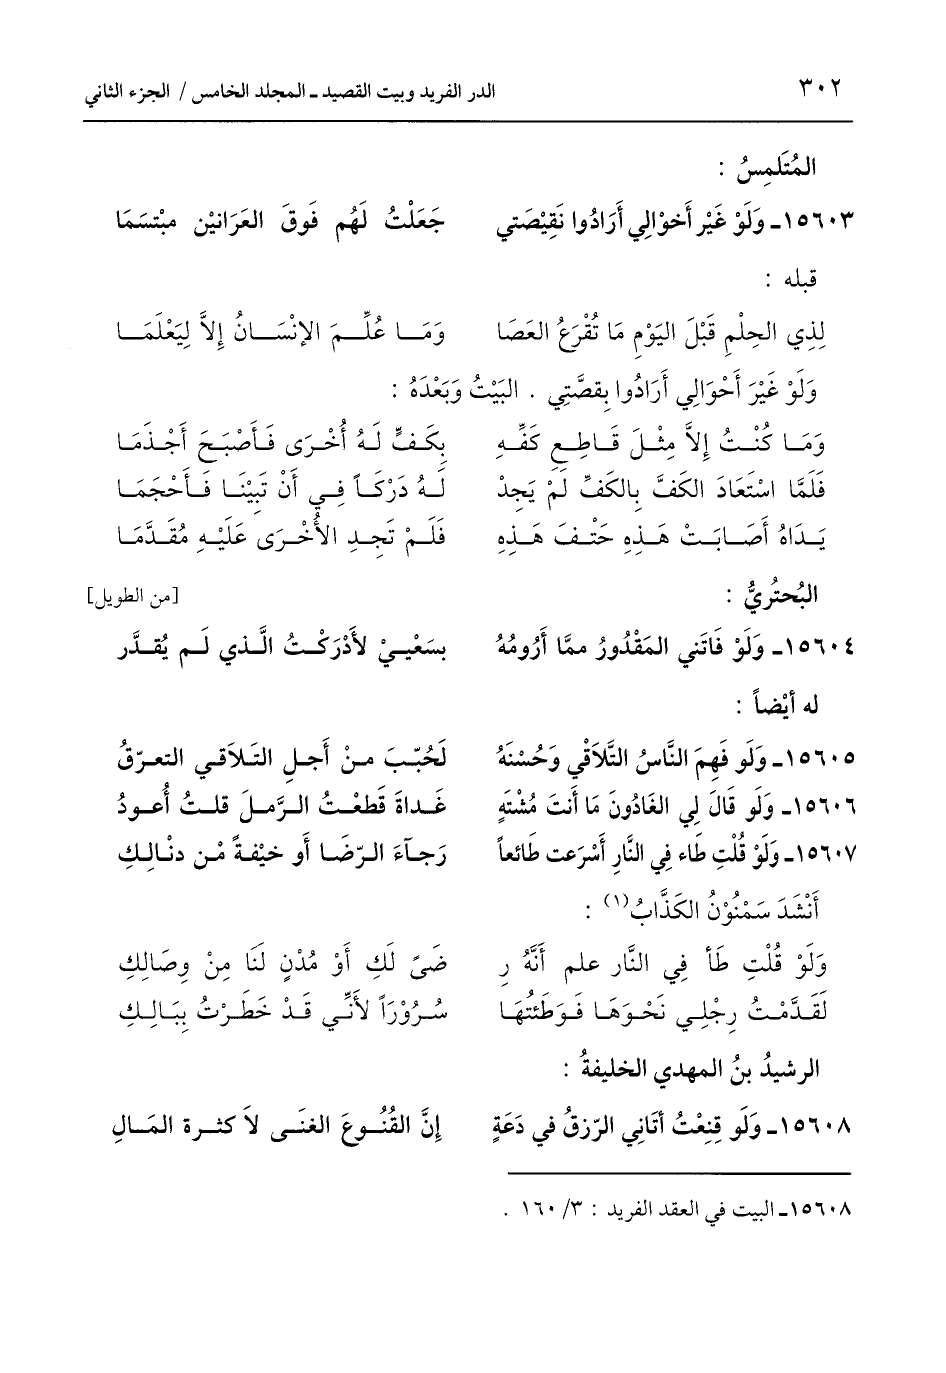 ٣٠٢ الدر الفريد وبيت القصيد ـ المجلد الخامس / الجزء الثاني
المُتَلَمِسُ :
١٥٦٠٣ـ وَلَوْ غَيْر أخوْالِي أَرَادُوا نَقِيْصَتي جَعَلْتُ لَهُم فَوقَ العَرَانيْن مبْتسَمَا
قبله :
لِذِي الحِلْمِ قَبْلَ اليَوْمِ مَا تُقْرَعُ العَصَا وَمَـا عُلِّـمَ الإنْسَـانُ إِلاَّ لِيَعْلَمَـا
وَلَوْ غَيْرَ أَحْوَالِي أَرَادُوا بِقصَّتِي . البَيْتُ وَبَعْدَهُ :
وَمَـا كُنْـتُ إِلاَّ مِثْـلَ قَـاطِـعِ كَفِّـهِ بِكَـفٍّ لَـهُ أُخْـرَى فَـأَصْبَـحَ أَجْـذَمَـا
فَلَمَّا اسْتَعَادَ الكَفَّ بِالكَفِّ لَمْ يَجِدْ لَـهُ دَرْكَـاً فِـي أَنْ تَبِيْنَـا فَـأَحْجَمَـا
يَـدَاهُ أَصَـابَـتْ هَـذِهِ حَتْـفَ هَـذِهِ فَلَـمْ تَجِـدِ الأُخْـرَى عَلَيْـهِ مُقَـدَّمَـا
البُحتُريُّ : [من الطويل]
١٥٦٠٤ـ وَلَوْ فَاتَني المَقْدُورُ ممَّا أَرُومُهُ بسَعْيـيْ لأَدْرَكْـتُ الَّـذي لَـم يُقـدَّر
له أيْضاً :
١٥٦٠٥ـ وَلَو فَهِمَ النَّاسُ التَّلاَقْي وَحُسْنَهُ لَحُبّـبَ مـنْ أَجـلِ التـلاَقـي التعـرّقُ
١٥٦٠٦ـ وَلَو قَالَ لِي الغَادُونَ مَا أَنتَ مُشْتَهٍ غَـداةَ قَطعْـتُ الـرَّمـلَ قلـتُ أُعـودُ
١٥٦٠٧ـ وَلَوْ قُلْتِ طَاء فِي النَّارِ أَسْرَعت طَائعاً رَجـآءَ الـرّضَـا أو خيْفـةً مْـن دنْـالِـكِ
أَنْشَدَ سَمْنُوْنُ الكَذَّابُ(١) :
وَلَوْ قُلْتِ طَأ فِي النَّار علم أَنَّهُ رِ ضَىً لَكِ أَوْ مُدْنٍ لَنَا مِنْ وِصَالِكِ
لَقَـدَّمْـتُ رِجْلِـي نَحْـوَهَـا فَـوَطَئْتُهَـا سُـرُوْرَاً لأَنِّـي قَـدْ خَطَـرْتُ بِبَـالِـكِ
الرشيدُ بنُ المهدي الخليفةُ :
١٥٦٠٨ـ وَلَو قنِعْتُ أتَاني الرّزقُ في دَعَةٍ إِنَّ القُنُـوعَ الغنَـى لاَ كثـرة المَـالِ
١٥٦٠٨ـ البيت في العقد الفريد : ٣/ ١٦٠ .